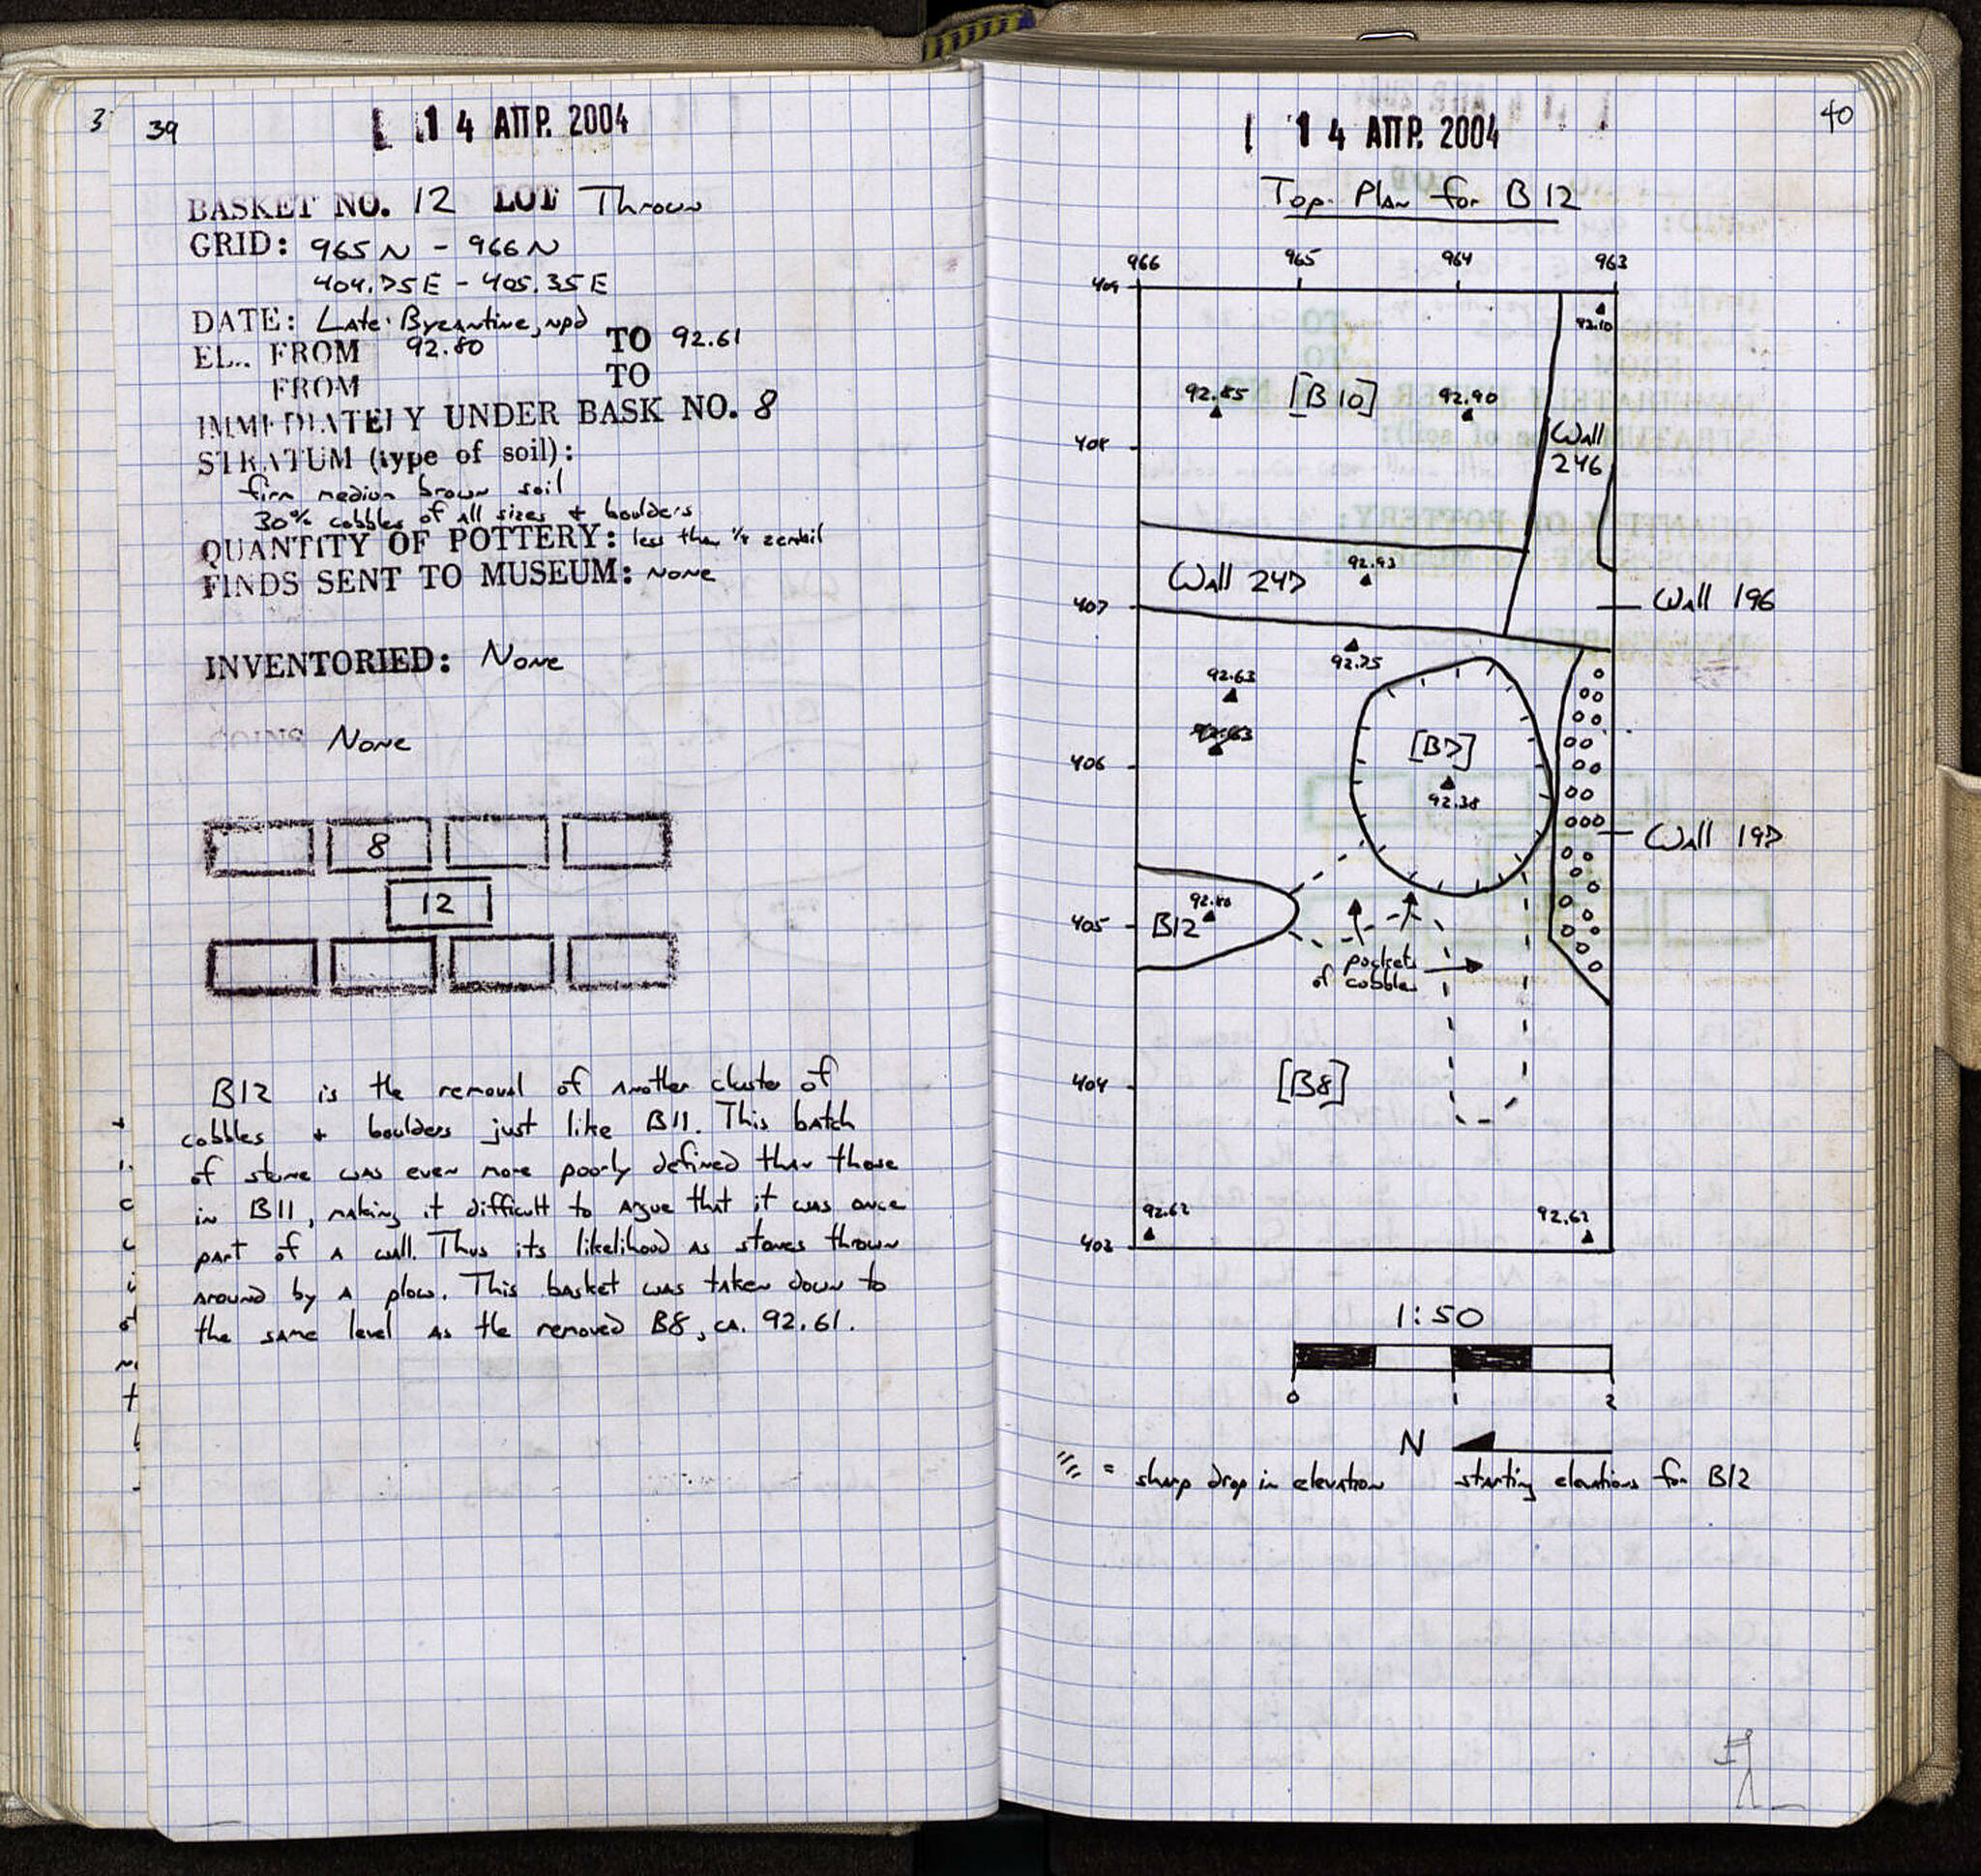 39
14 ΑΠΡ. 2004
BASKET NO. 12 LOT Thrown
GRID: 965N - 966N
404.75E - 405.35E
DATE: Late Byzantine, npd
EL.. FROM 92.80 TO 92.61
FROM TO
IMMEDIATELY UNDER BASK NO. 8
STRATUM (type of soil):
firm medium brown soil
30% cobbles of all sizes + boulders
QUANTITY OF POTTERY: less than 1/8 zembil
FINDS SENT TO MUSEUM: None
INVENTORIED: None
None
8
12
B12 is the removal of another cluster of
cobbles + boulders just like B11. This batch
of stone was even more poorly defined than those
in B11, making it difficult to argue that it was once
part of a wall. Thus its likelihood as stones thrown
around by a plow. This basket was taken down to
the same level as the removed B8, ca. 92.61.
40
14 ΑΠΡ. 2004
Top Plan for B12
966 965 964 963
409
92.10
92.85 [B10] 92.90
408
Wall
246
92.93
Wall 247
407
Wall 196
92.75
92.63
[B7]
406
92.38
Wall 197
92.80
405 B12
pockets
of cobbles
404
[B8]
92.62 92.62
403
1:50
0 1 2
N
= sharp drop in elevation starting elevations for B12